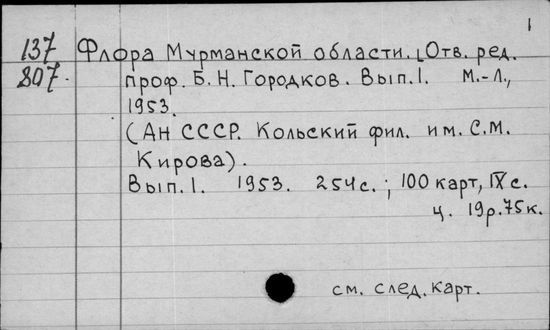 1
137 Флора Мурманской области. [Отв. ред.
807. проф. Б. Н. Городков. Вып. 1. М.-Л.,
1953.
(АН СССР. Кольский фил. им. С.М.
Кирова).
Вып. 1. 1953. 254 с.; 100 карт, IX с.
ц. 19р.75к.
см. след. карт.